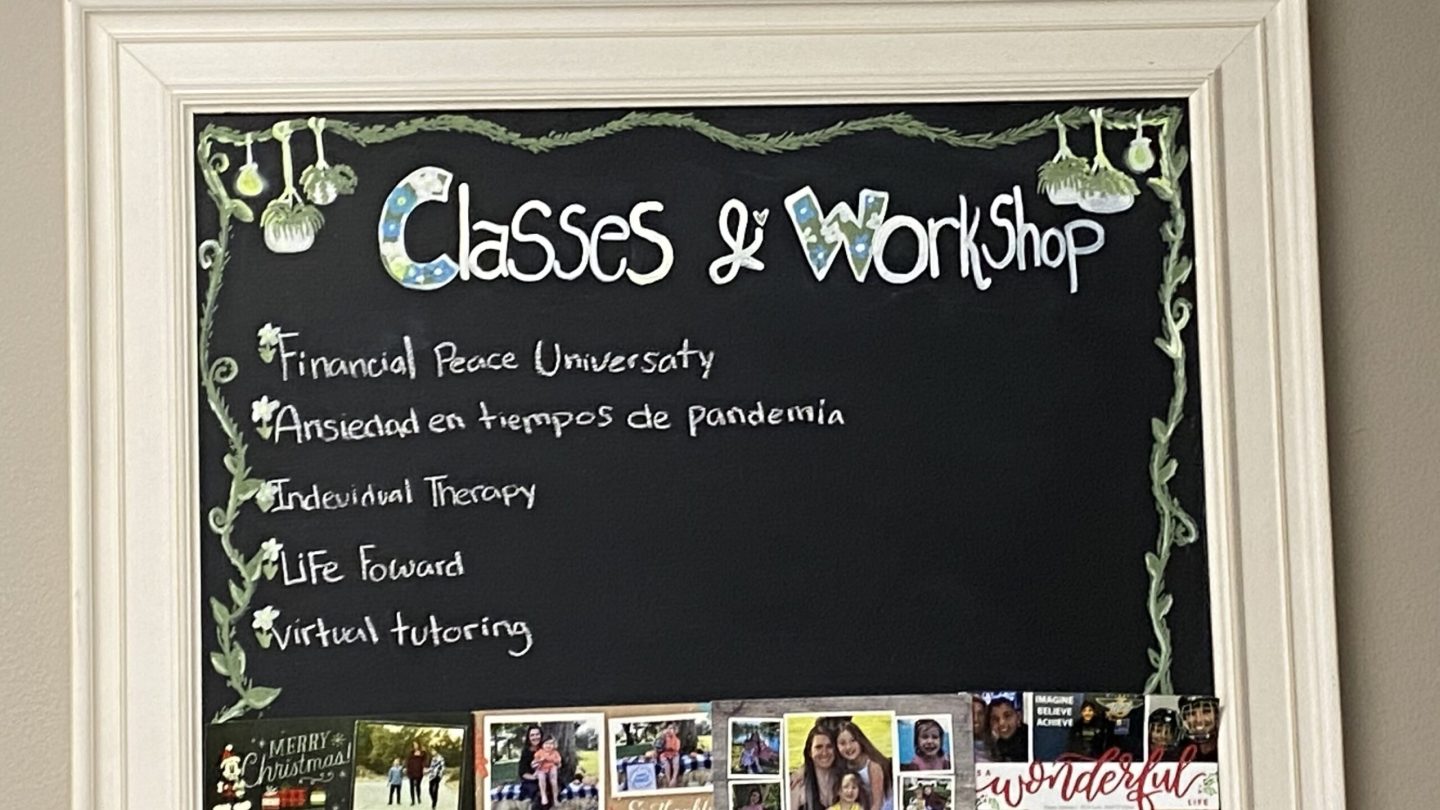 Classes & Workshop
Financial Peace Universaty
Ansiedad en tiempos de pandemia
Indevidual Therapy
Life Foward
virtual tutoring
MERRY
Christmas!
IMAGINE
BELIEVE
ACHIEVE
wonderful
LIFE